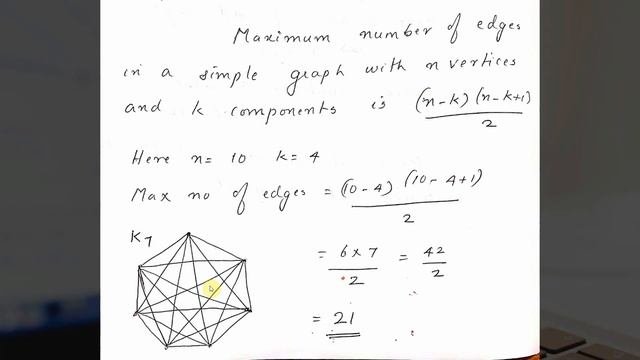 Maximum number of edges
in a simple graph with n vertices
and k components is (n-k) (n-k+1)
2
Here n= 10 k= 4
Max no of edges = (10-4) (10-4+1)
2
K7
= 6 x 7 = 42
2 2
= 21